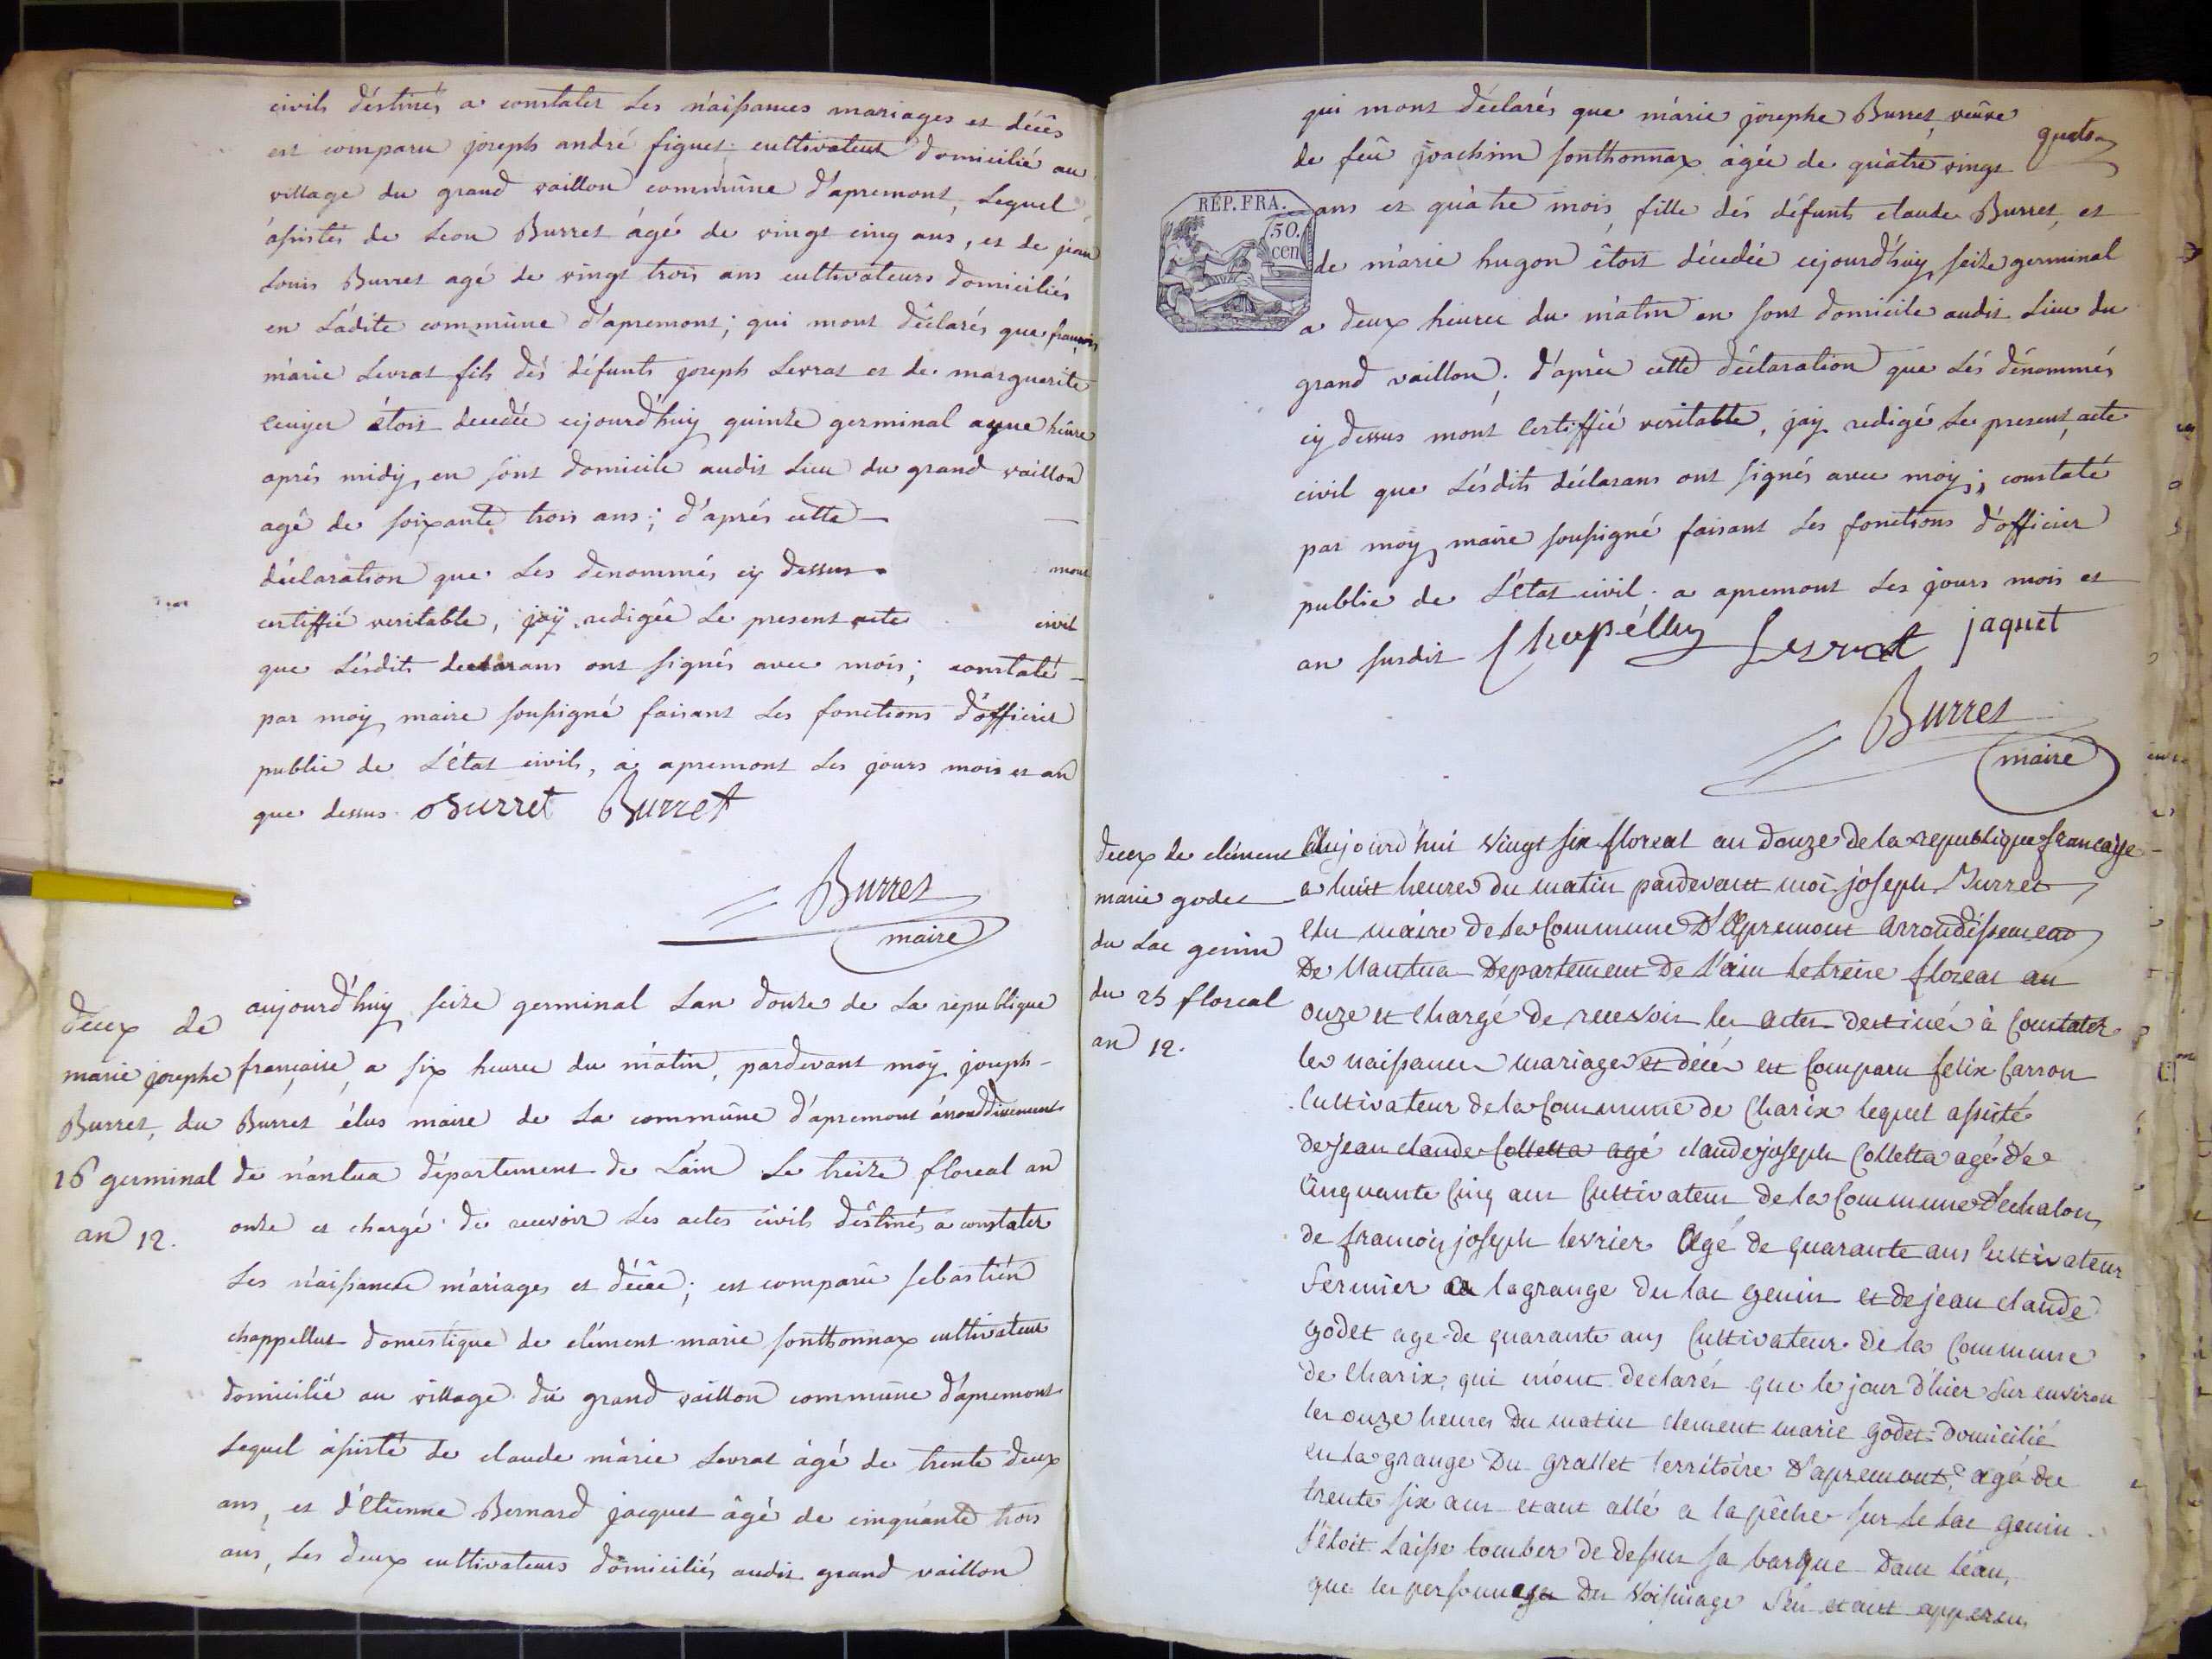 civils déstinés a constater Les n'aissances mariages et décês
est comparu joseph andré figuet cultivateur domicilié au
village du grand vaillon commûne d'apremont, Lequel
àssistés de Leon Burret ágé de vingt cinq ans, et de jean
Louis Burret agé de vingt trois ans cultivateurs domiciliés
en Ládite commûne d'apremont; qui mont déclarés que françois
márie Levrat fils dés défunts joseph Levrat et de marguerite
étoit decedée cejourd'huy quinze germinal a une hèure
aprés midy, en sont domicile audit Lieu du grand vaillon
agé de soixante trois ans; d'aprés cette
déclaration que Les dénommés cy dessus mont
certiffié veritable, jay redigée Le present acte civil
que Lésdits declarans ont signés avec mois; constaté
par moy maire soussigné faisant Les fonctions d'officier
public de L'état civils, à apremont Les jours mois et an
que dessus. Burret Burret
Burret
maire
décex de
marie josephe
Burret, du
16 germinal
an 12.
aujourd'huy seize germinal Lan douze de La republique
française, a six heures du mátin, pardevant moy joseph
Burret élus maire de La commûne d'apremont árronddissement
de nántua département de Láin Le treize floreal an
onze et chargé de recevoir Les actes civils déstinés a constater
Les n'aissances máriages et décée; est comparû sebastién
chappellut domestique de clément marie sonthonnax cultivateur
domicilié au village du grand vaillon commûne d'apremont
Lequel àssisté de claude màrie Levrat àgé de trente deux
ans, et d'étienne Bernard jacquet âgé de cinquánte trois
ans, Les deux cultivateurs domiciliés audit grand vaillon
qui mont déclarés que márie josephe Burret veûve
de feû joachim sonthonnax ágée de quàtre vingt quatre
RÉP. FRA.
50.
cen
ans et quàtre mois, fille dés défunts claude Burret et
de márie hugon êtoit décedée cejourd'huy seize germinal
a deux heures du mátin en sont domicile audit Lieu du
grand vaillon; d'aprés cette déclaration que Lés dénommés
cy dessus mont certiffié veritable, jay redigé Le present acte
civil que Lésdits déclarans ont signés avec moy; constaté
par moy maire soussigné faisant Les fonctions d'officier
public de L'état civil a apremont Les jours mois et
an susdit Levrat jaquet
Burret
maire
decex de clément
marie godet
du Lac genin
du 25 floreal
an 12.
Aujourd'hui vingt six floreal an douze de la republique francaise
a huit heures du matin pardevant moi joseph Burret
elu maire de la Commune D'Apremont arrondissement
De Nantua Departement de L'ain le treize floreal an
onze et chargé de recevoir les actes destinés à Constater
les naissances mariages et décés est Comparu felix Carron
Cultivateur de la Commune de Charix lequel assisté
de jean claude Colletta agé claude joseph Colletta agé de
Cinquante Cinq ans Cultivateur de la Commune d'echalon,
de francois joseph levrier Agé de quarante ans Cultivateur
Fermier a la grange du lac genin et de jean claude
godet agé de quarante ans Cultivateur de la Commune
de Charix, qui m'ont declarés que le jour d'hier sur environ
les onze heures du matin clement marie godet domicilié
en la grange Du grallet Territoire d'apremont, agé de
trente six ans etant allé a la pêche sur le Lac genin
s'etoit Laisse tomber de dessus sa barque dans l'eau,
que les du voisinage s'en etant apperçu